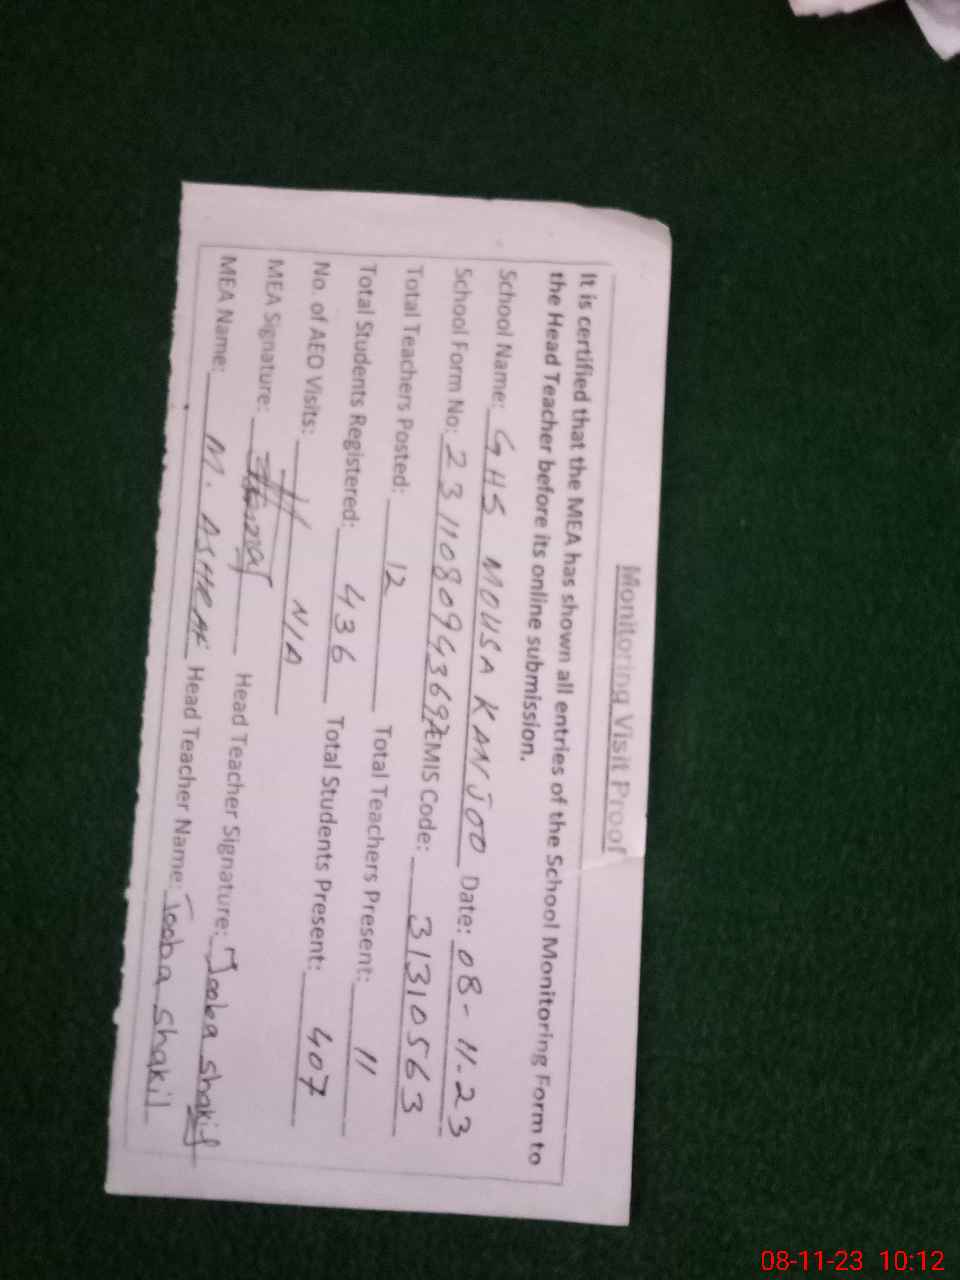 Monitoring Visit Proof
It is certified that the MEA has shown all entries of the School Monitoring Form to
the Head Teacher before its online submission.
School Name: GHS MOUSA KANJOO Date: 08-11-23
School Form No: 23110809436 EMIS Code: 31310563
Total Teachers Posted: 12 Total Teachers Present: 11
Total Students Registered: 436 Total Students Present: 407
No. of AEO Visits: N/A
MEA Signature: Head Teacher Signature: Tooba shakil
MEA Name: M. ASHRAF Head Teacher Name: Tooba shakil
08-11-23 10:12